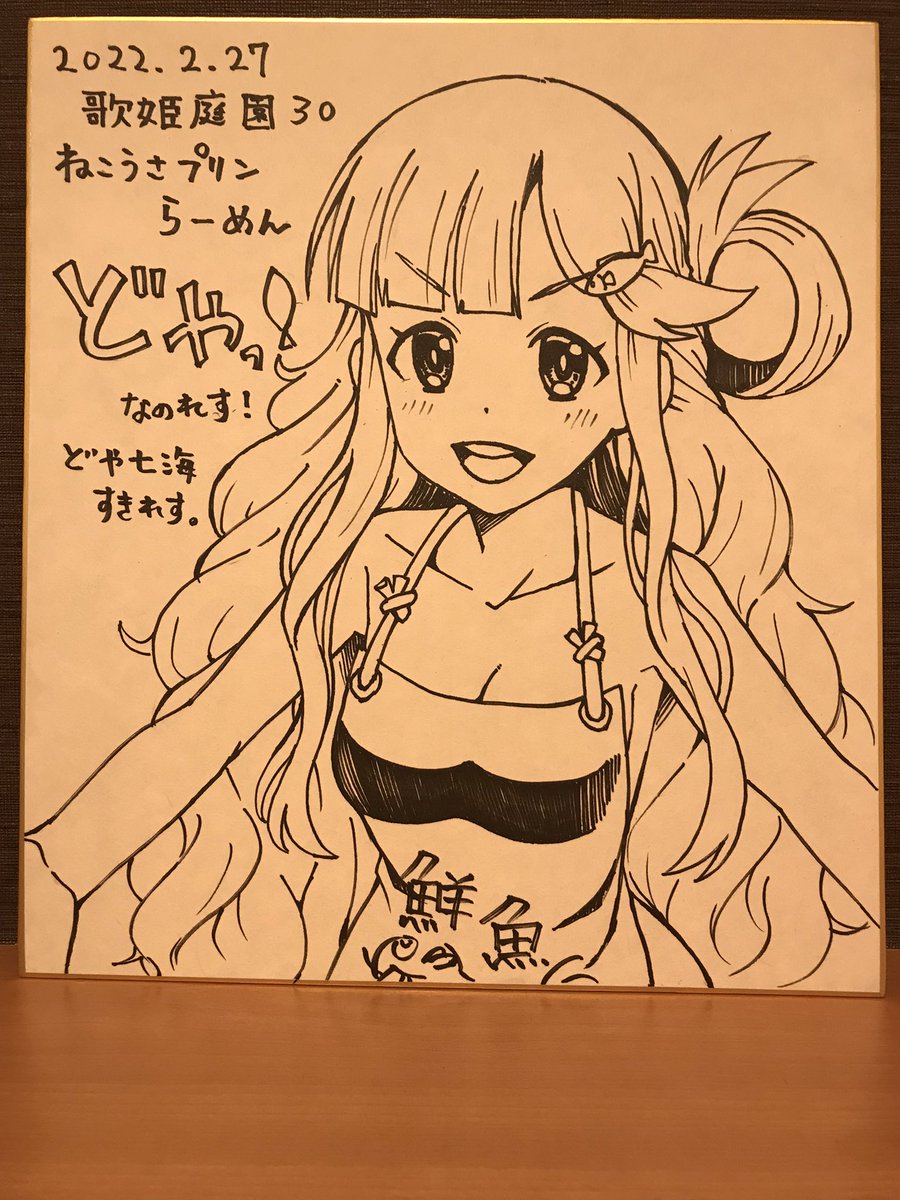 2022.2.27
歌姫庭園30
ねこうさプリン
らーめん
どやっ!
なのれす!
どや七海
すきれす。
鮮魚